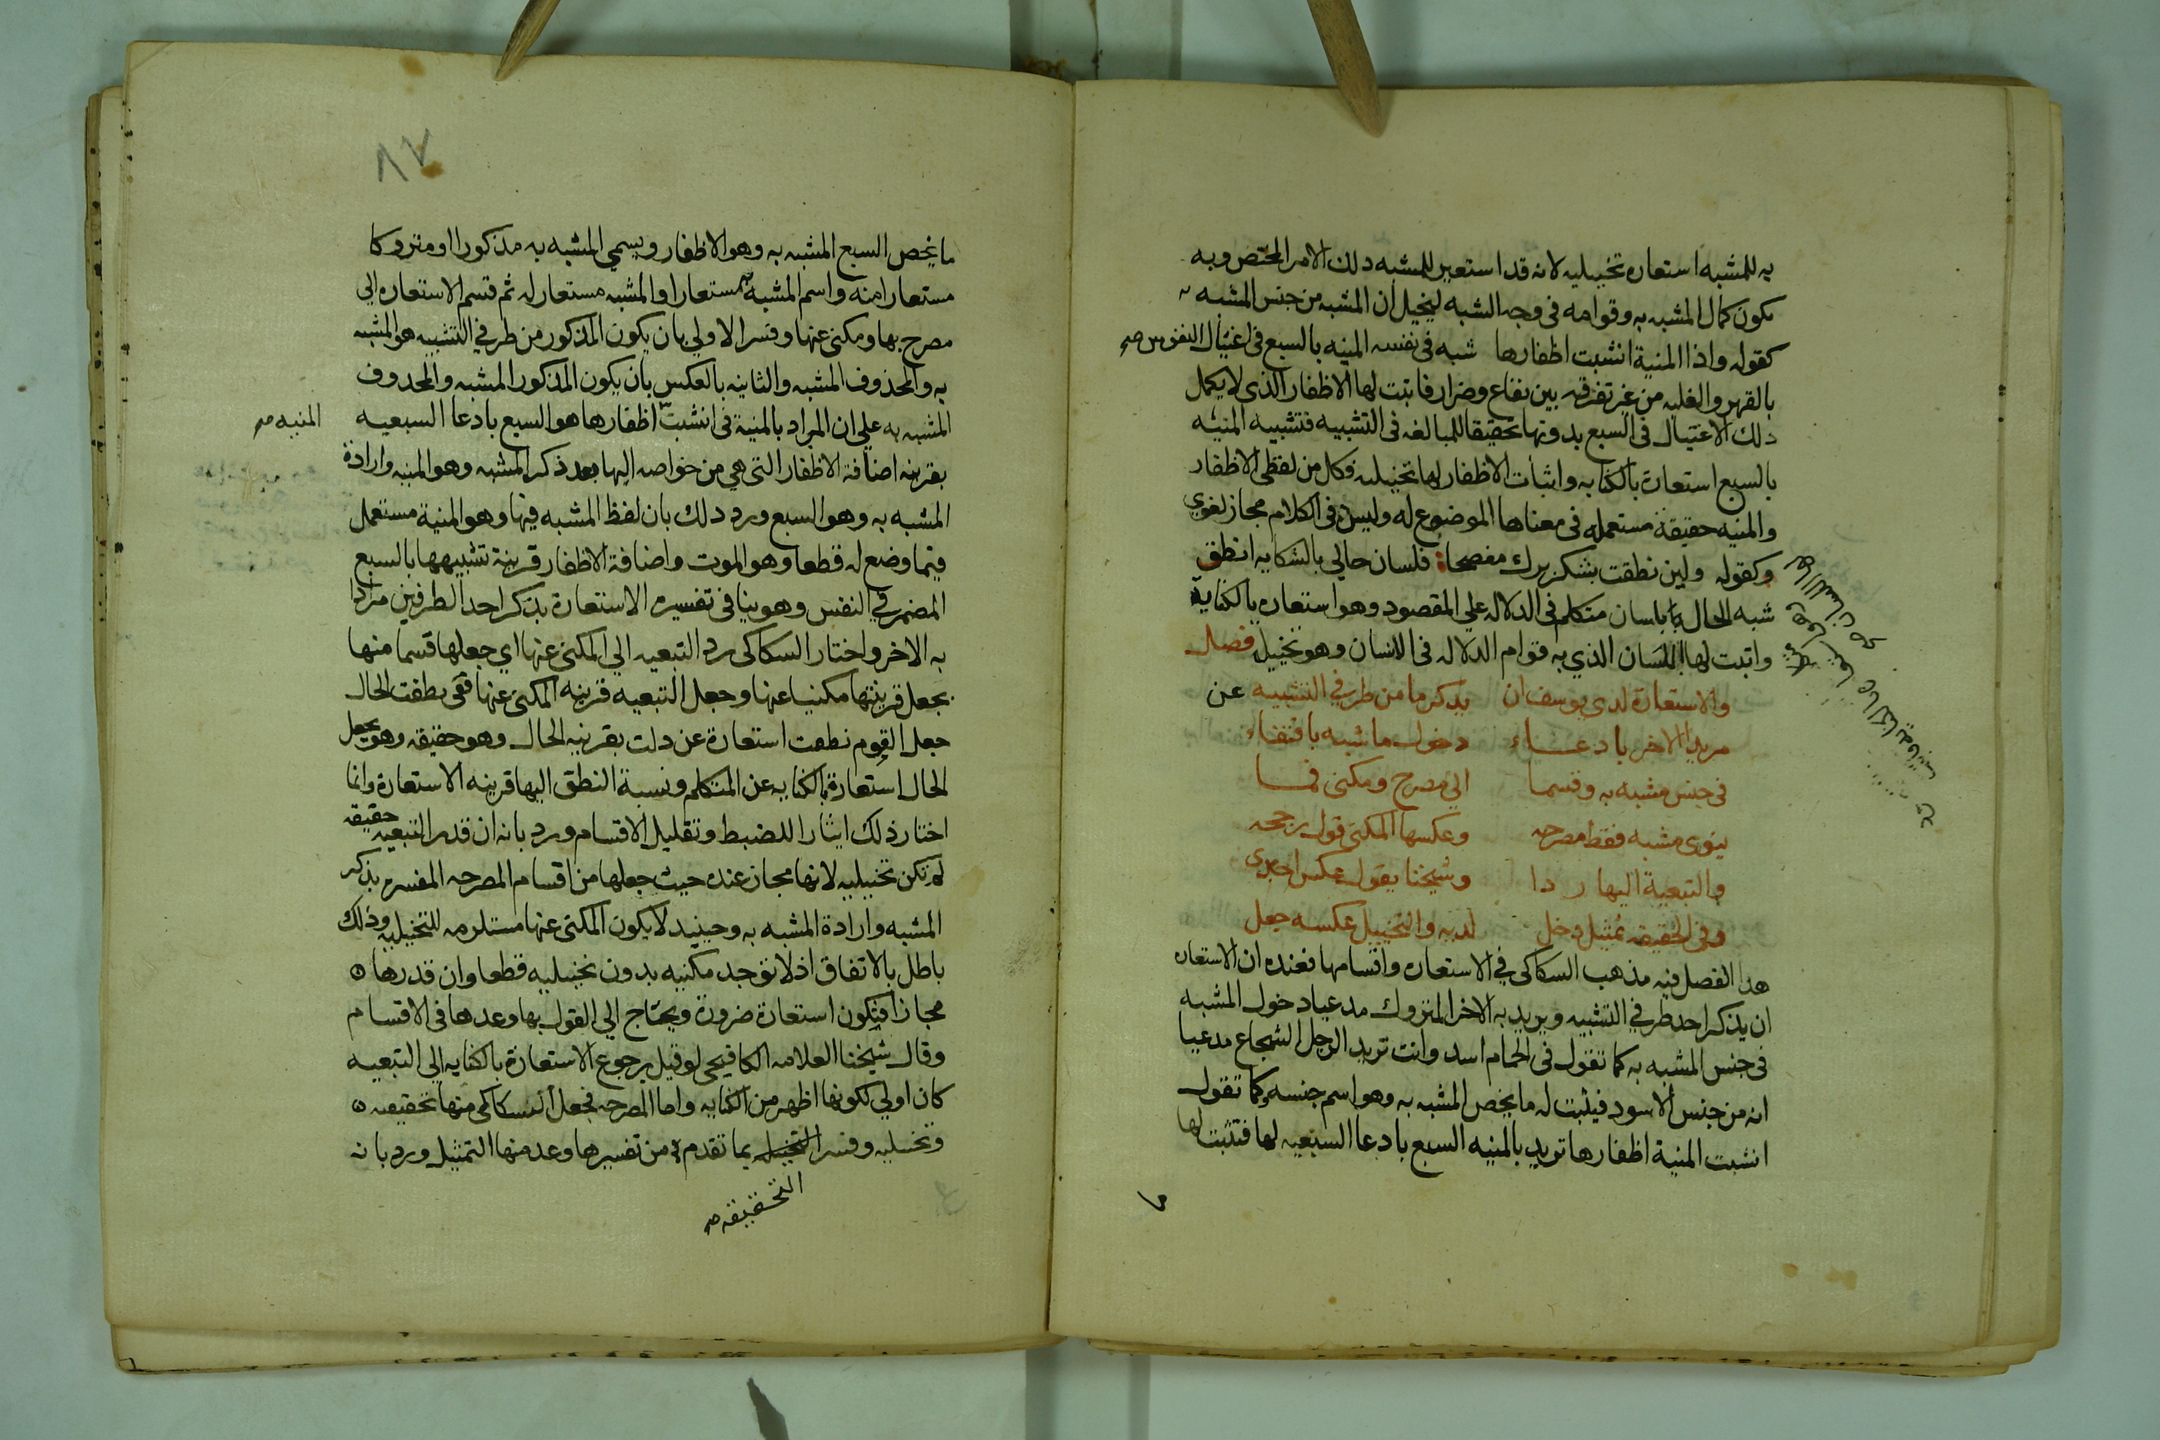 به للمشبه استعاره تخييليه لانه قد استعير للمشبه ذلك الامر المختص وبه
يكون كمال المشبه به وقوامه فى وجه الشبه ليخيل ان المشبه من جنس المشبه به
كقوله واذا المنية انشبت اظفارها شبه فى نفسه المنيه بالسبع فى اغتيال النفوس صح
بالقهر والغلبه من غير تفرقه بين نفاع وضرار فاثبت لها الاظفار الذى لا يكمل
ذلك الاغتيال فى السبع بدونها تحقيقا للمبالغه فى التشبيه فتشبيه المنيه
بالسبع استعارة بالكنايه واثبات الاظفار لها تخييليه فكل من لفظى الاظفار
والمنيه حقيقة مستعمله فى معناها الموضوع له وليس فى الكلام مجاز لغوي
وكقوله ولين نطقت بشكر برك مفصحا فلسان حالي بالشكايه انطق
شبه الحال بانسان متكلم فى الدلاله علي المقصود وهو استعاره بالكناية
واثبت لها اللسان الذي به قوام الدلاله فى الانسان وهو تخييل فصل
والاستعارة لدى يوسف ان يذكر ما من طرفي التشبيه عن
مريدا الاخر بادعاء دخول ما شبه باقتفاء
فى جنس مشبه به وقسما الي مصرح ومكنى فما
ينوى مشبه فقط مصرحه وعكسها المكنى قول رجحه
والتبعية اليها ردا وشيخنا يقول عكس اجدى
وفى الحقيقه تمثيل دخل لديه والتخييل عكسه جعل
هذا الفصل فيه مذهب السكاكى في الاستعاره واقسامها فعنده ان الاستعاره
ان يذكر احد طرفي التشبيه ويريد به الاخر المتروك مدعيا دخول المشبه
فى جنس المشبه به كما تقول فى الحمام اسد وانت تريد الرجل الشجاع مدعيا
انه من جنس الاسود فيثبت له ما يخص المشبه به وهو اسم جنسه وكما تقول
انشبت المنية اظفارها تريد بالمنيه السبع بادعا السبعيه لها فتثبت لها
ما
٨٧
ما يخص السبع المشبه به وهو الاظفار ويسمي المشبه به مذكورا او متروكا
مستعارا منه واسم المشبه به مستعارا والمشبه مستعار له ثم قسم الاستعاره الي
مصرح بها ومكنى عنها وفسر الاولي بان يكون المذكور من طرفي التشبيه هو المشبه
به والمحذوف المشبه والثانيه بالعكس بان يكون المذكور المشبه والمحذوف
المشبه به علي ان المراد بالمنية فى انشبت اظفارها هو السبع بادعا السبعيه
المنيه صح
بقرينه اضافة الاظفار التى هي من خواصه اليها بعد ذكر المشبه وهو المنيه وارادة
المشبه به وهو السبع ورد ذلك بان لفظ المشبه فيها وهو المنية مستعمل
فيما وضع له قطعا وهو الموت واضافة الاظفار قرينة تشبيهها بالسبع
المضمر في النفس وهو ينافى تفسيره الاستعارة بذكر احد الطرفين مرادا
به الاخر واختار السكاكى رد التبعيه الي المكنى عنها اي جعلها قسما منها
بجعل قرينتها مكنيا عنها وجعل التبعيه قرينه المكنى عنها ففى نطقت الحال
جعل القوم نطقت استعارة عن دلت بقرينه الحال وهو حقيقه وهو يجعل
الحال استعارة بالكنايه عن المتكلم ونسبة النطق اليها قرينه الاستعاره وانما
اختار ذلك ايثارا للضبط وتقليل الاقسام ورد بانه ان قدر التبعيه حقيقه
لم تكن تخييليه لانها مجاز عنده حيث جعلها من اقسام المصرحه المفسره بذكر
المشبه وارادة المشبه به وحينيد لا يكون المكنى عنها مستلزمه للتخييليه وذلك
باطل بالاتفاق اذ لا توجد مكنيه بدون تخييليه قطعا وان قدرها
مجازا فتكون استعارة ضرورة ويحتاج الي القول بها وعدها فى الاقسام
وقال شيخنا العلامه الكافيجى لو قيل برجوع الاستعارة بالكنايه الي التبعيه
كان اولي لكونها اظهر من الكنايه واما المصرحه فجعل السكاكى منها تحقيقيه
وتخييليه وفسر التخييليه بما تقدم من تفسيرها وعد منها التمثيل ورد بانه
التحقيقيه صح